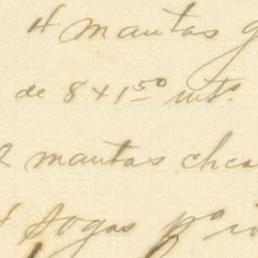 4 mantas
de 8 x 1⁵⁰ mts.
2 mantas chca
sogas pª